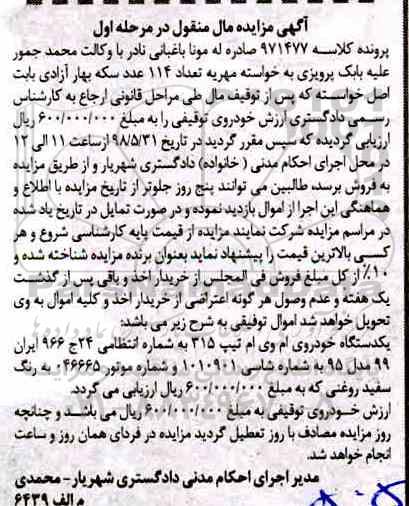 آگهی مزایده مال منقول در مرحله اول
پرونده کلاسه ۹۷۱۴۷۷ صادره له مونا باغبانی نادر با وکالت محمد جمور
علیه بابک پرویزی به خواسته مهریه تعداد ۱۱۴ عدد سکه بهار آزادی بابت
اصل خواسته که پس از توقیف مال طی مراحل قانونی ارجاع به کارشناس
رسمی دادگستری ارزش خودروی توقیفی را به مبلغ ۶۰۰/۰۰۰/۰۰۰ ریال
ارزیابی گردیده که سپس مقرر گردید در تاریخ ۹۸/۵/۳۱ ازساعت ۱۱ الی ۱۲
در محل اجرای احکام مدنی ( خانواده) دادگستری شهریار و از طریق مزایده
به فروش برسد، طالبین می توانند پنج روز جلوتر از تاریخ مزایده با اطلاع و
هماهنگی این اجرا از اموال بازدید نموده و در صورت تمایل در تاریخ یاد شده
در مراسم مزایده شرکت نمایند مزایده از قیمت پایه کارشناسی شروع و هر
کسی بالاترین قیمت را پیشنهاد نماید بعنوان برنده مزایده شناخته شده و
۱۰٪ از کل مبلغ فروش فی المجلس از خریدار اخذ و باقی پس از گذشت
یک هفته و عدم وصول هر گونه اعتراضی از خریدار اخذ و کلیه اموال به وی
تحویل خواهد شد اموال توقیفی به شرح زیر می باشد:
یکدستگاه خودروی ام وی ام تیپ ۳۱۵ به شماره انتظامی ۲۴ج ۹۶۶ ایران
۹۹ مدل ۹۵ به شماره شاسی ۱۰۱۰۹۰۱ و شماره موتور ۰۴۶۶۶۵ به رنگ
سفید روغنی که به مبلغ ۶۰۰/۰۰۰/۰۰۰ ریال ارزیابی می گردد.
ارزش خودروی توقیفی به مبلغ ۶۰۰/۰۰۰/۰۰۰ ریال می باشد و چنانچه
روز مزایده مصادف با روز تعطیل گردید مزایده در فردای همان روز و ساعت
انجام خواهد شد.
مدیر اجرای احکام مدنی دادگستری شهریار- محمدی
م الف ۶۴۳۹